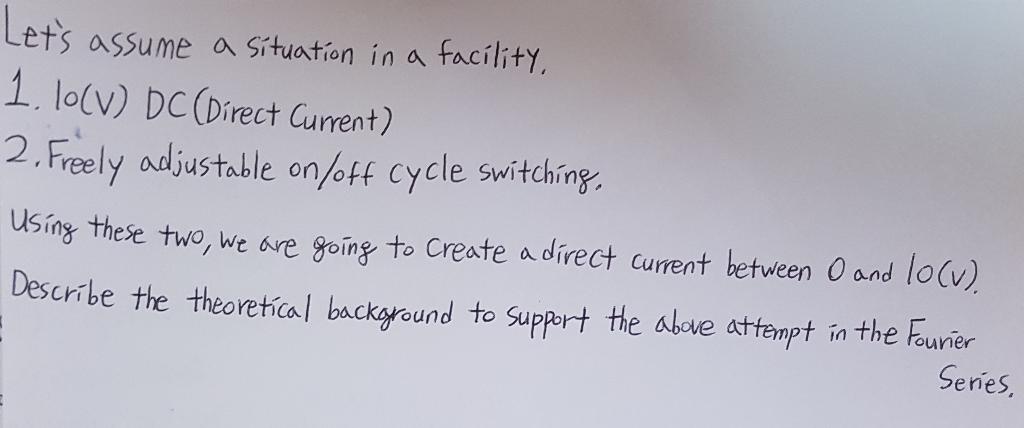 Let's assume a situation in a facility.
1. 10(V) DC (Direct Current)
2. Freely adjustable on/off cycle switching.
Using these two, we are going to create a direct current between 0 and 10(V).
Describe the theoretical background to support the above attempt in the Fourier
Series.